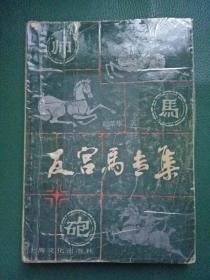 帅
馬
反宫馬专集
砲
上海文化出版社